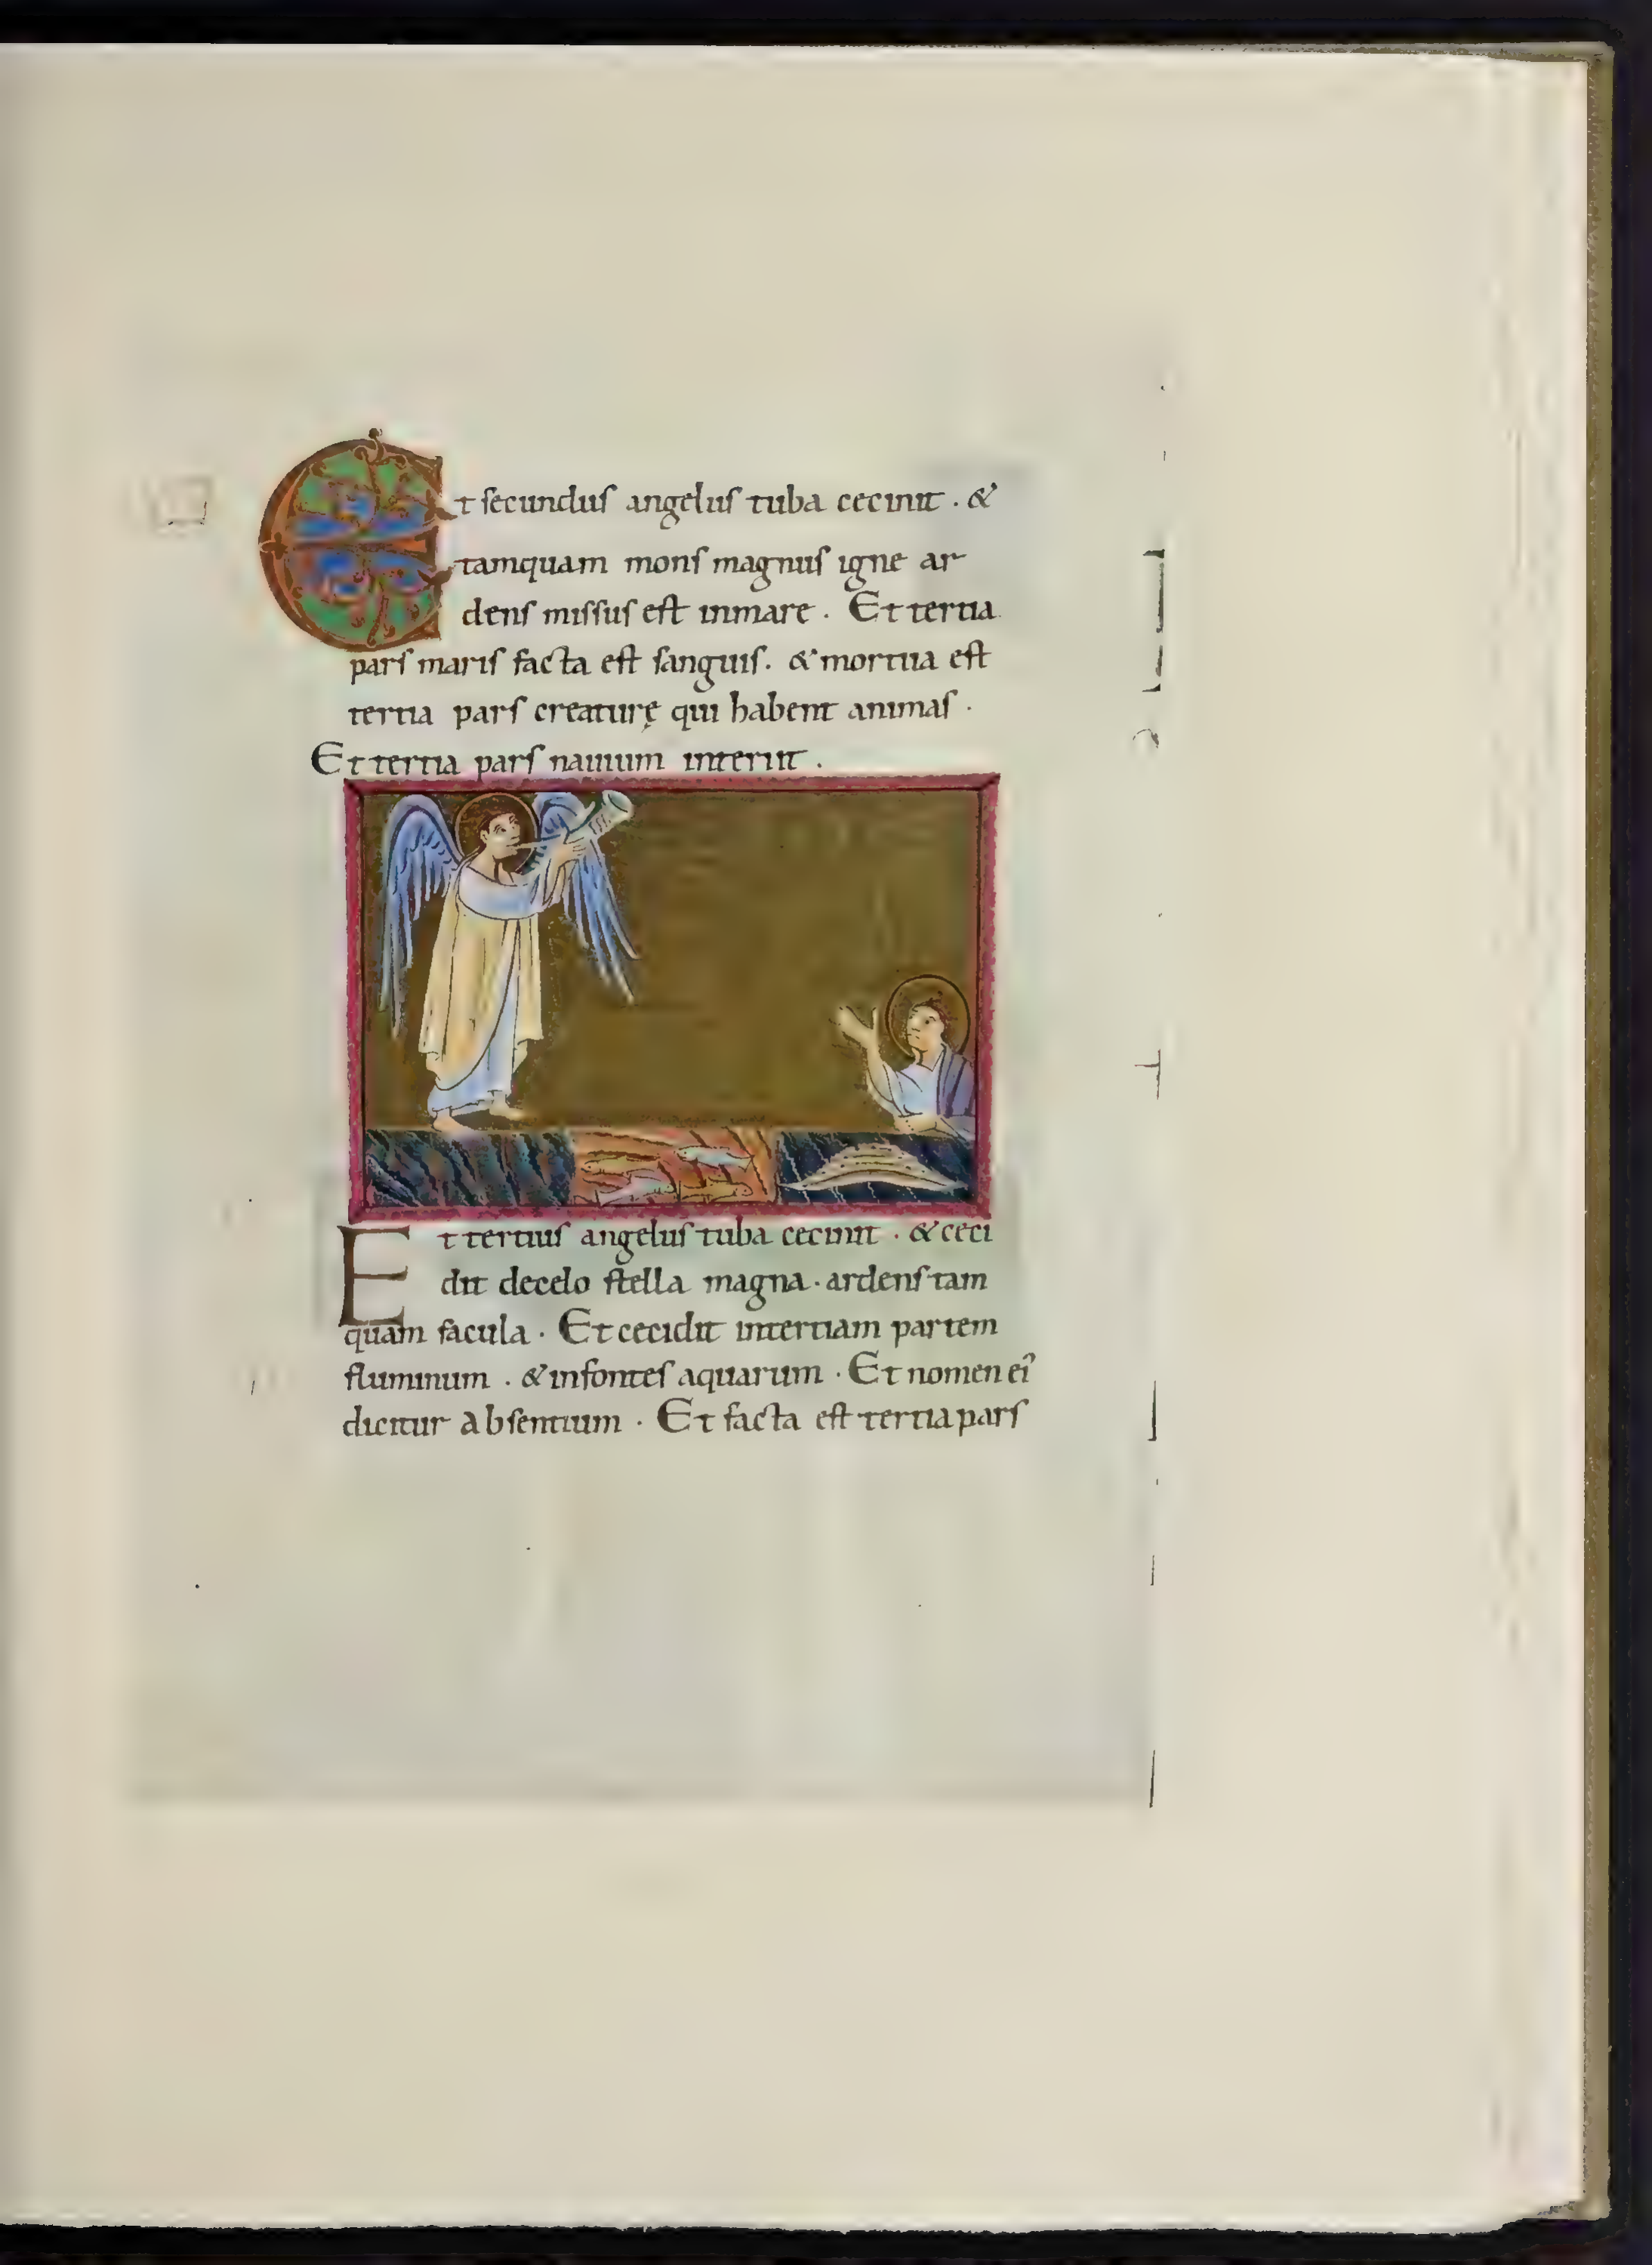 Et secundus angelus tuba cecinit . &
tamquam mons magnus igne ar
dens missus est inmare . Et tertia
pars maris facta est sanguis . & mortua est
tertia pars creaturę qui habent animas .
Et tertia pars nauium interiit .
Et tertius angelus tuba cecinit . & ceci
dit decelo stella magna . ardens tam
quam facula . Et cecidit intertiam partem
fluminum . & infontes aquarum . Et nomen ei᾽
dicitur absentium . Et facta est tertia pars